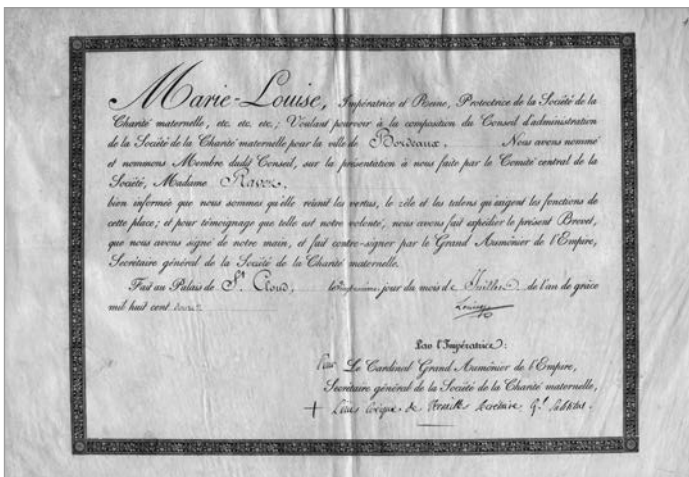 Marie-Louise, Impératrice et Reine, Protectrice de la Société de la
Charité maternelle, etc. etc. etc.; Voulant pourvoir à la composition du Conseil d'administration
de la Société de la Charité maternelle pour la ville de Bordeaux. Nous avons nommé
et nommons Membre dudit Conseil, sur la présentation à nous faite par le Comité central de la
Société, Madame
bien informée que nous sommes qu'elle réunit les vertus, le zèle et les talens qu'exigent les fonctions de
cette place; et pour témoignage que telle est notre volonté, nous avons fait expédier le présent Brevet,
que nous avons signé de notre main, et fait contre-signer par le Grand Aumônier de l'Empire,
Secrétaire général de la Société de la Charité maternelle.
Fait au Palais de St. Cloud, le jour du mois de Juillet de l'an de grâce
mil huit cent
Louise
Par l'Impératrice:
Pour Le Cardinal Grand Aumônier de l'Empire,
Secrétaire général de la Société de la Charité maternelle,
+ Louis évêque de Versailles Secrétaire Gl. Substitut.